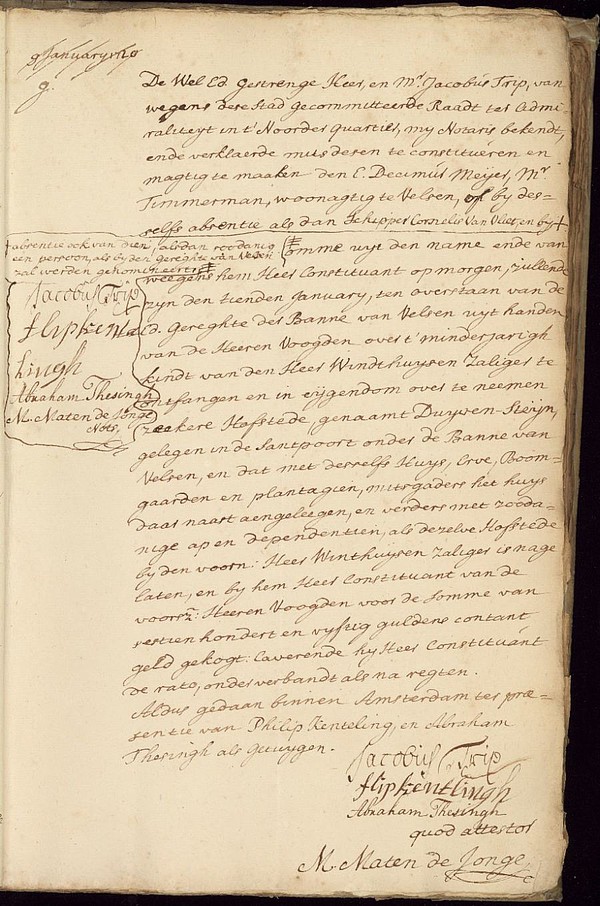 9 January 1719
g.
De Wel Ed Gestrenge Heer, en Mr. Jacobus Trip, van
wegens dese Stad gecommitteerde Raadt ter Admi-
raliteyt in t' Noorder quartier, my Notaris bekendt,
ende verklaerde mits desen te constitueren en
magtig te maaken den E. Decimus Meyer, Mr.
Timmerman, woonagtig te Velsen, of by des-
selfs absentie als dan Schipper Cornelis Van Vliet, en by +
+ absentie ook van dien, als dan soodanig
een persoon, als by den gereghte van Velsen
zal werden gekomitteert
omme uyt den name ende van
weegens hem Heer Constituant op morgen, zullende
zyn den tienden January, ten overstaan van de
Ed. Gereghte des Banne van Velsen uyt handen
van de Heeren Voogden over t' minderjarigh
kindt van den Heer Windthuysen Zaliger te
ontfangen en in eijgendom over te neemen
zeekere Hofstede, genaamt Duyven-Steijn,
gelegen in de Santpoort onder de Banne van
Velsen, en dat met desselfs Huys, Erve, Boom-
gaarden en plantagien, mitsgaders het huys
daar naast aengeleegen, en verders met zooda-
nige ap en dependentien, als dezelve Hofstede
by den voorn: Heer Winthuysen Zaliger is nage
laten, en by hem Heer Constituant van de
voorsz: Heeren Voogden voor de somme van
sestien hondert en vyftig guldens contant
geld gekogt: Caverende hy Heer Constituant
de rato, onder verbandt als na regten.
Aldus gedaan binnen Amsterdam ter præ-
sentie van Philip Kenteling, en Abraham
Thesingh als getuygen.
Jacobus Trip
flip kente
lingh
Abraham Thesingh
M. Maten de Jonge
Nots.
Jacobus Trip
flip kentlingh
Abraham Thesingh
quod attestor
M. Maten de Jonge